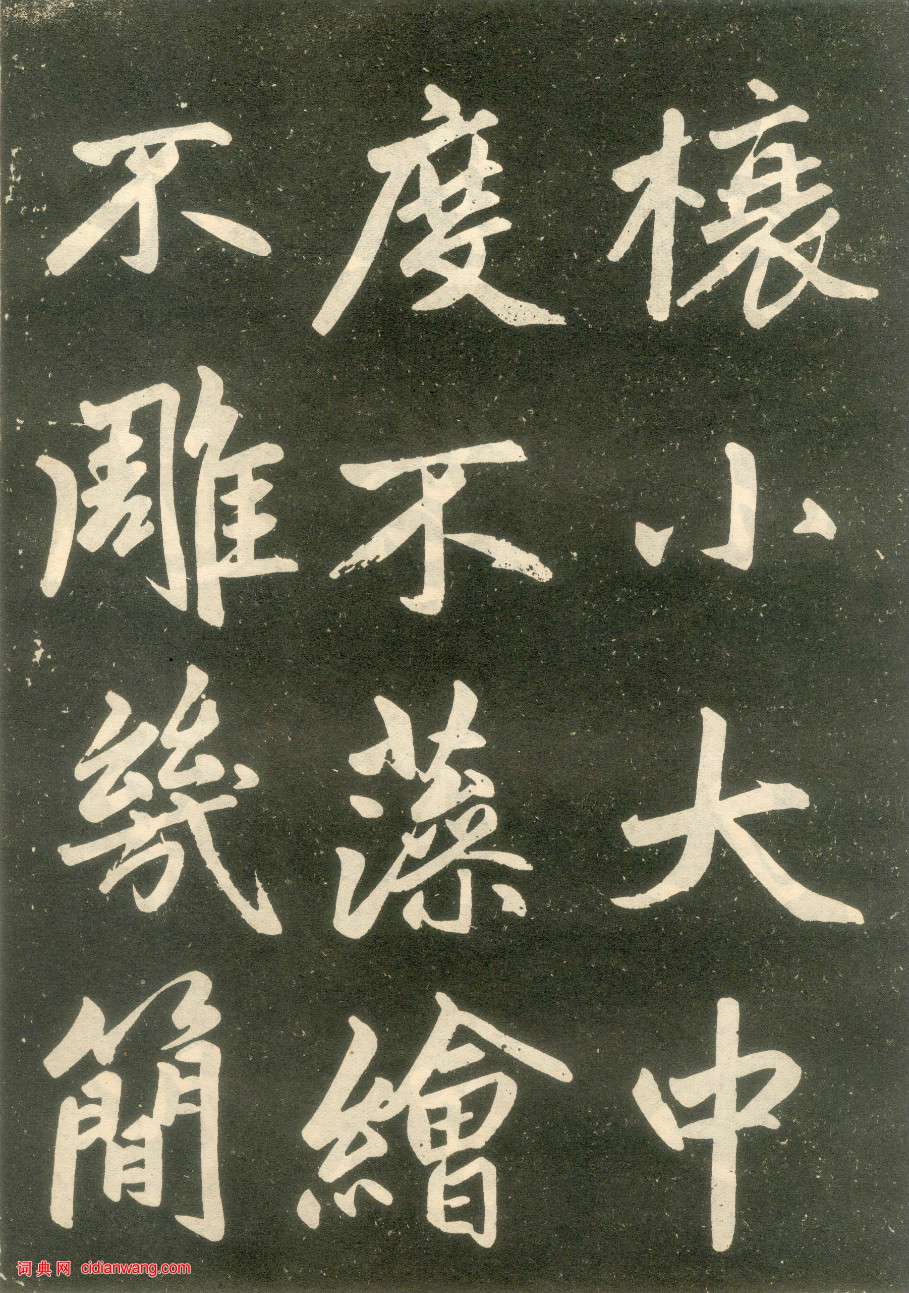 榱小大中
度不藻繪
不雕幾簡
词典网 cidianwang.com